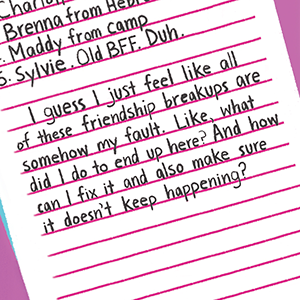 Brenna from Hebr
Maddy from camp
5. Sylvie. Old BFF. Duh.
I guess I just feel like all
of these friendship breakups are
somehow my fault. Like, what
did I do to end up here? And how
can I fix it and also make sure
it doesn't keep happening?